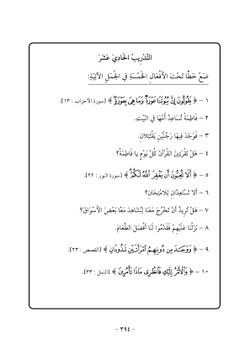 التَّدْرِيبُ الْحَادِيَ عَشَرَ
ضَعْ خَطًّا تَحْتَ الْأَفْعَالِ الْخَمْسَةِ فِي الْجُمَلِ الْآتِيَةِ:
١ - ﴿ يَقُولُونَ إِنَّ بُيُوتَنَا عَوْرَةٌ وَمَا هِيَ بِعَوْرَةٍ ﴾ [سورة الأحزاب : ١٣].
٢ - فَاطِمَةُ تُسَاعِدُ أُمَّهَا فِي الْبَيْتِ.
٣ - فَوَجَدَ فِيهَا رَجُلَيْنِ يَقْتَتِلَانِ.
٤ - هَلْ تَقْرَئِينَ الْقُرْآنَ كُلَّ يَوْمٍ يَا فَاطِمَةُ؟
٥ - ﴿ أَلَا تُحِبُّونَ أَن يَغْفِرَ اللَّهُ لَكُمْ ﴾ [سورة النور : ٢٢].
٦ - أَلَا تَسْتَعِدَّانِ لِلِامْتِحَانِ؟
٧ - هَلْ تُرِيدُ أَنْ تَخْرُجَ مَعَنَا لِنُشَاهِدَ مَعًا بَعْضَ الْأَسْوَاقِ؟
٨ - نَزَلْنَا عَلَيْهِمْ فَقَدَّمُوا لَنَا أَفْضَلَ الطَّعَامِ.
٩ - ﴿ وَوَجَدَ مِن دُونِهِمُ امْرَأَتَيْنِ تَذُودَانِ ﴾ [القصص : ٢٣].
١٠ - ﴿ وَالْأَمْرُ إِلَيْكِ فَانظُرِي مَاذَا تَأْمُرِينَ ﴾ [النمل : ٣٣].
- ٣٩٤ -